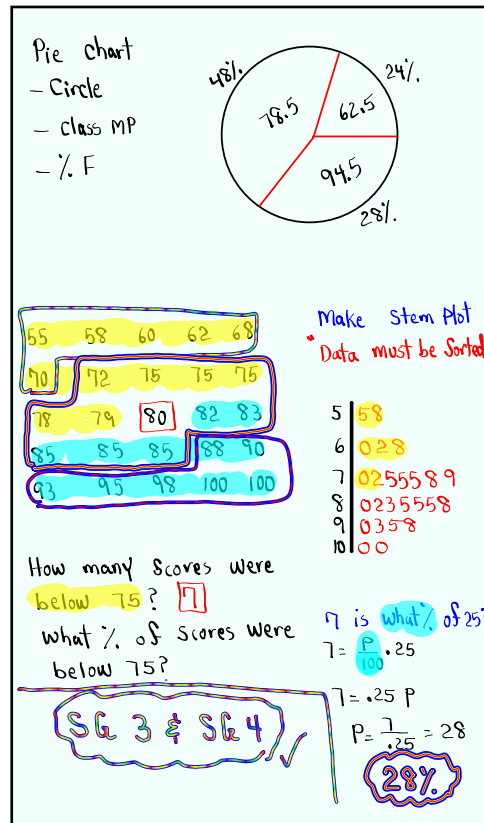 Pie chart
- Circle
- class MP
- % F
48%
24%
78.5
62.5
94.5
28%
55 58 60 62 68
70 72 75 75 75
78 79 80 82 83
85 85 85 88 90
93 95 98 100 100
Make Stem Plot
*Data must be Sorted
5 | 58
6 | 028
7 | 0255589
8 | 0235558
9 | 0358
10 | 00
How many Scores were
below 75? 7
what % of Scores were
below 75?
7 is what % of 25?
7 = P/100 . 25
7 = .25 P
P = 7/.25 = 28
28%
SG 3 & SG 4 ✓